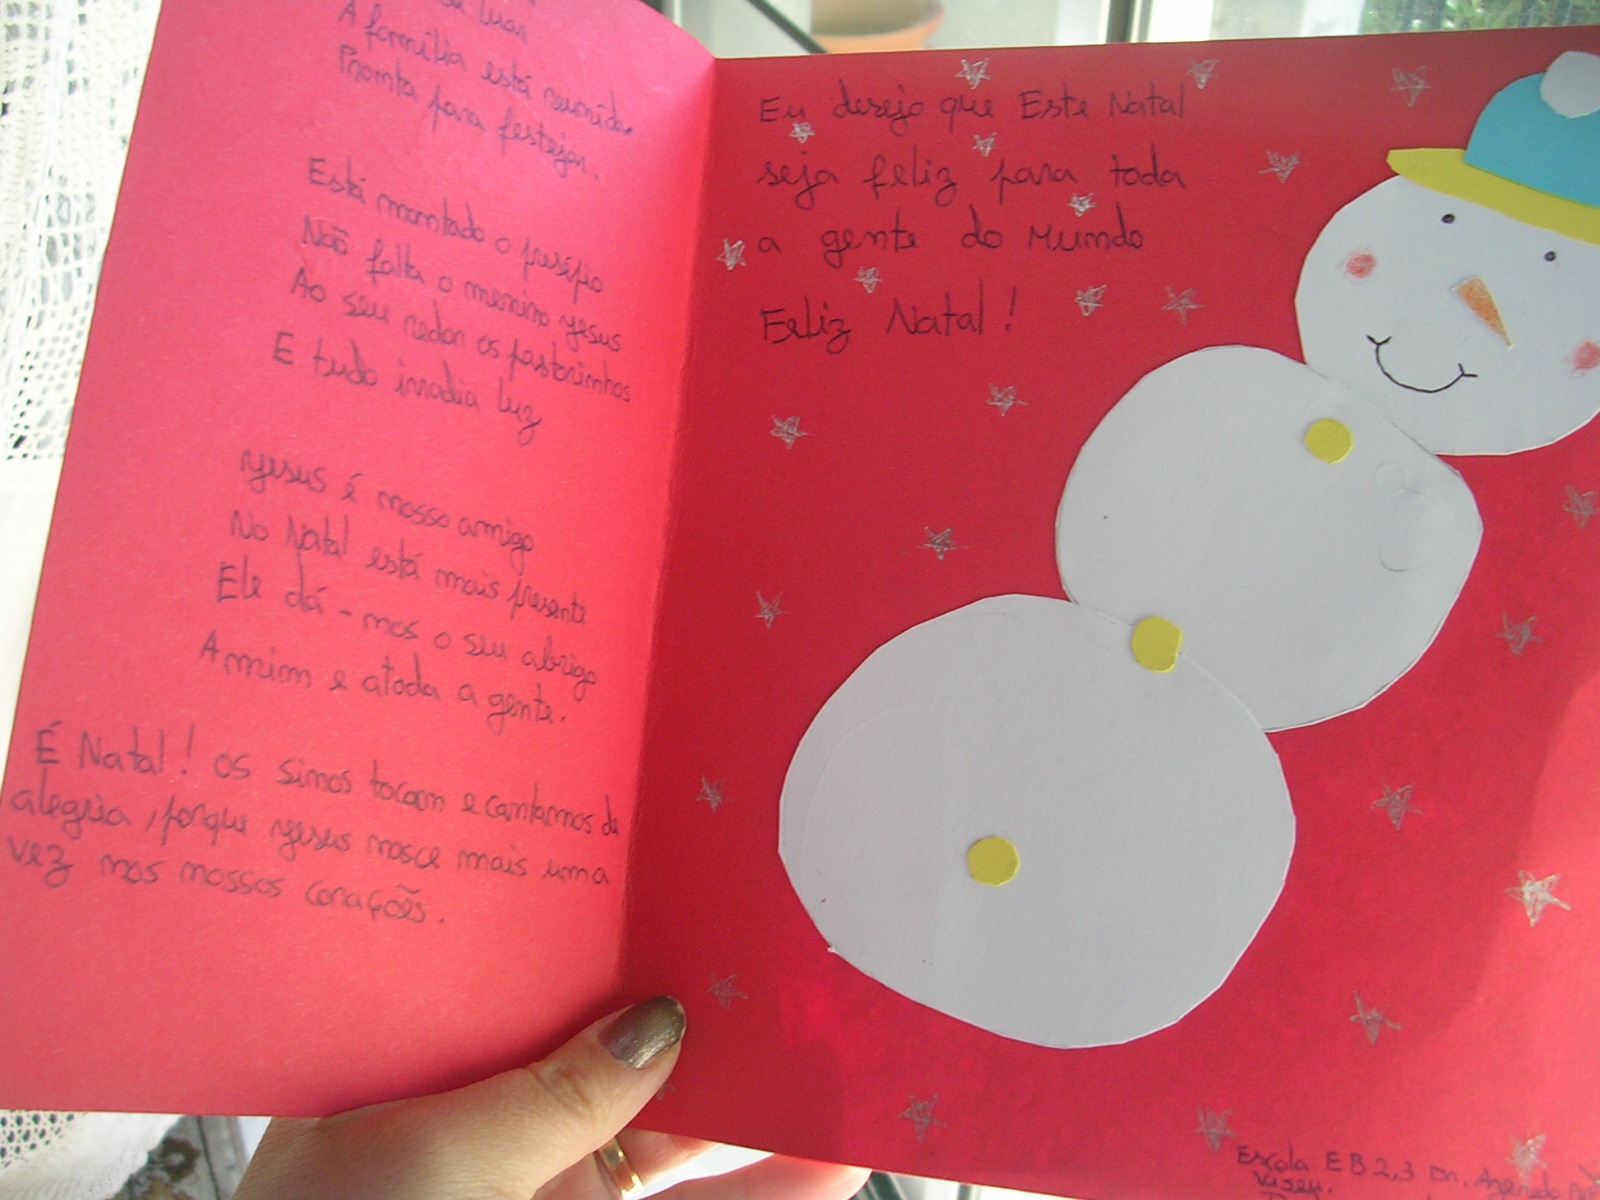 luar
A família está reunida
Pronta para festejar.
Está montado o presépio
Não falta o menino yesus
Ao seu redor os pastorinhos
E tudo irradia luz
yesus é nosso amigo
No Natal está mais presente
Ele dá-nos o seu abrigo
A mim e atoda a gente.
É Natal! os sinos tocam e cantamos de
alegria, porque yesus nasce mais uma
vez nos nossos corações.
Eu desejo que Este Natal
seja feliz para toda
a gente do Mundo
Feliz Natal!
Escola EB 2,3 Dr.
Viseu.